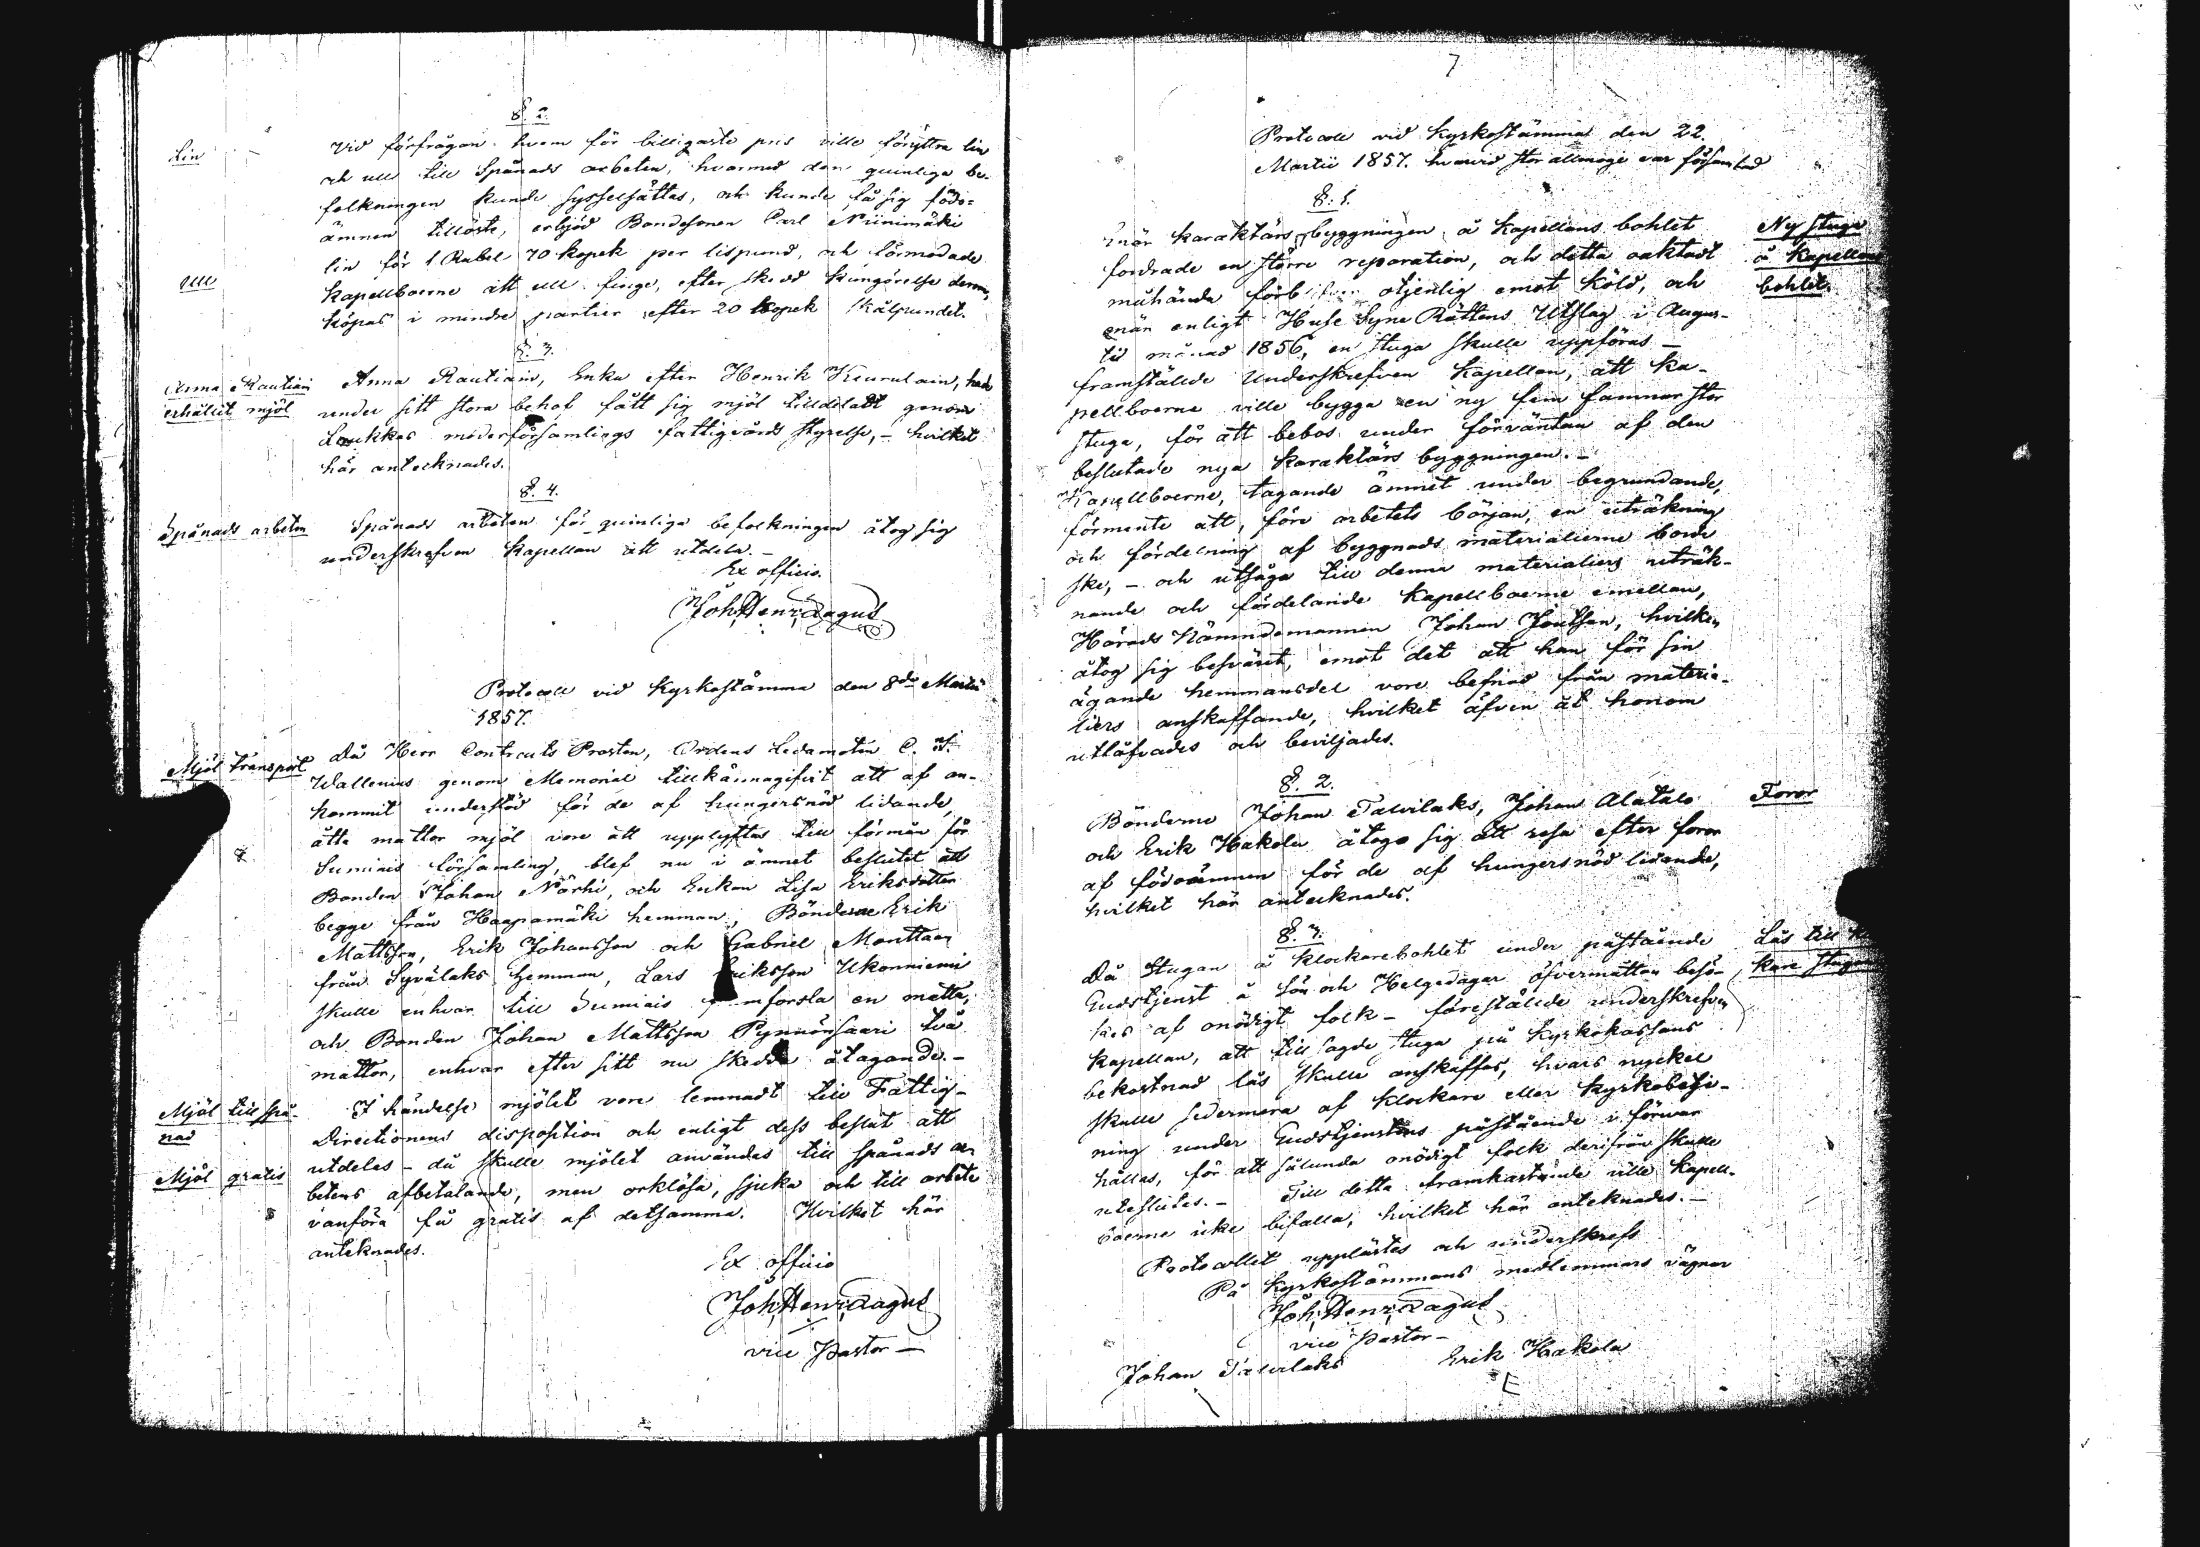 §. 2.
Lin
Vid förfrågan hvem för billigaste pris ville föryttra lin
och ull till Spånads arbeten, hvarmed den quinliga be-
folkningen kunde sysselsättas, och kunde få sig födo-
ämnen tillöste, erbjöd Bondesonen Carl Niinimäki
lin för 1 Rubel 70 kopek per lispund, och förmodade
Ull
Kapellboerne att ull finge, efter skedd kungörelse derom,
köpas i mindre partier efter 20 kopek skålpundet.
§. 3.
Anna Rautiain
erhållit mjöl
Anna Rautiain, Enka efter Henrik Kiurulain, had
under sitt stora behof fått sig mjöl tilldeladt genom
Laukkas moderförsamlings fattigvårds styrelse, - hvilket
här antecknades.
§. 4.
Spånads arbeten
Spånads arbeten för quinliga befolkningen åtog sig
underskrefven Kapellan att utdela. -
Ex officio.
Joh: Henr: Aagus
Protocoll vid Kyrkostämma den 8de Martii
1857.
Mjöl transport
Då Herr Contracts Prosten, Ordens Ledamoten C. J.
Wallenius genom Memorial tillkännagifvit att af an-
kommit understöd för de af hungersnöd lidande,
åtta mattor mjöl vore att upplyftas till förmån för
Sumiais församling, blef nu i ämnet beslutit att
Bonden Johan Närhi, och Enkan Lisa Eriksdotter
begge från Haapamäki hemman, Bönderne Erik
Mattsson, Erik Johansson och Gabriel Manttaan
från Syvälaks hemman, Lars Eriksson Ukonniemi
skulle enhvar till Sumiais framforsla en matta,
och Bonden Johan Mattsson Pynnönsaari två
mattor, enhvar efter sitt nu skedda åtagande. -
Mjöl till spå-
nad
I händelse mjölet vore lemnadt till Fattig-
Directionens disposition och enligt dess beslut att
Mjöl gratis
utdelas - då skulle mjölet användas till spånads ar
betens afbetalande, men orklösa, sjuka och till arbete
vanföra få gratis af detsamma. Hvilket här
anteknades.
Ex officio
Joh: Henr: Aagus
vice Pastor -
7
Protocoll vid Kyrkostämma den 22
Martii 1857. hvarvid stor allmoge var församlad
§. 1.
Ny stuga
å Kapellans
bohlet.
Enär karaktärs byggningen å Kapellans bohlet
fordrade en större reparation, och detta oaktadt
måhända otjenlig emot köld, och
enär enligt Huse Syne Rättens Utslag i Augus-
tii månad 1856, en stuga skulle uppföras -
framställde Underskrefven Kapellan, att Ka-
pellboerne ville bygga en ny fem famnar stor
stuga, för att bebos under förväntan af den
beslutade nya karaktärs byggningen. -
Kapellboerne, tagande ämnet under begrundande,
förmente att, före arbetets början, en uträkning
och fördelning af byggnads materialierne borde
ske, - och utsågo till denna materialiers uträk-
nande och fördelande Kapellboerne emellan,
Härads Nämndemannen Johan Joutsen, hvilken
åtog sig besväret, emot det att han för sin
ägande hemmansdel vore befriad från materia-
liers anskaffande, hvilket äfven åt honom
utlofvades och beviljades.
§. 2.
Foror
Bönderne Johan Talvilaks, Johan Alatalo
och Erik Hakola åtogo sig att resa efter foror
af födoämnen för de af hungersnöd lidande,
hvilket här antecknades.
§. 3.
Lås till
kare stugan
Då Stugan å Klockarebohlet under påstående
Gudstjenst å Sön och Helgedagar öfvermåttan besö-
kes af onödigt folk - föreställde underskrefven
Kapellan, att till sagde stuga på Kyrkokassans
bekostnad lås skulle anskaffas, hvars nyckel
skulle sedermera af Klockare eller Kyrkobetje-
ning under Gudstjenstens påstående i förvar
hållas, för att sålunda onödigt folk derifrån skulle
uteslutes. - Till detta framkastade ville Kapell-
boerne icke bifalla, hvilket här anteknades. -
Protocollet upplästes och underskrefs
På Kyrkostämmans medlemmars vägnar
Joh: Henr: Aagus
vice Pastor -
Johan Talvilaks Erik Hakola